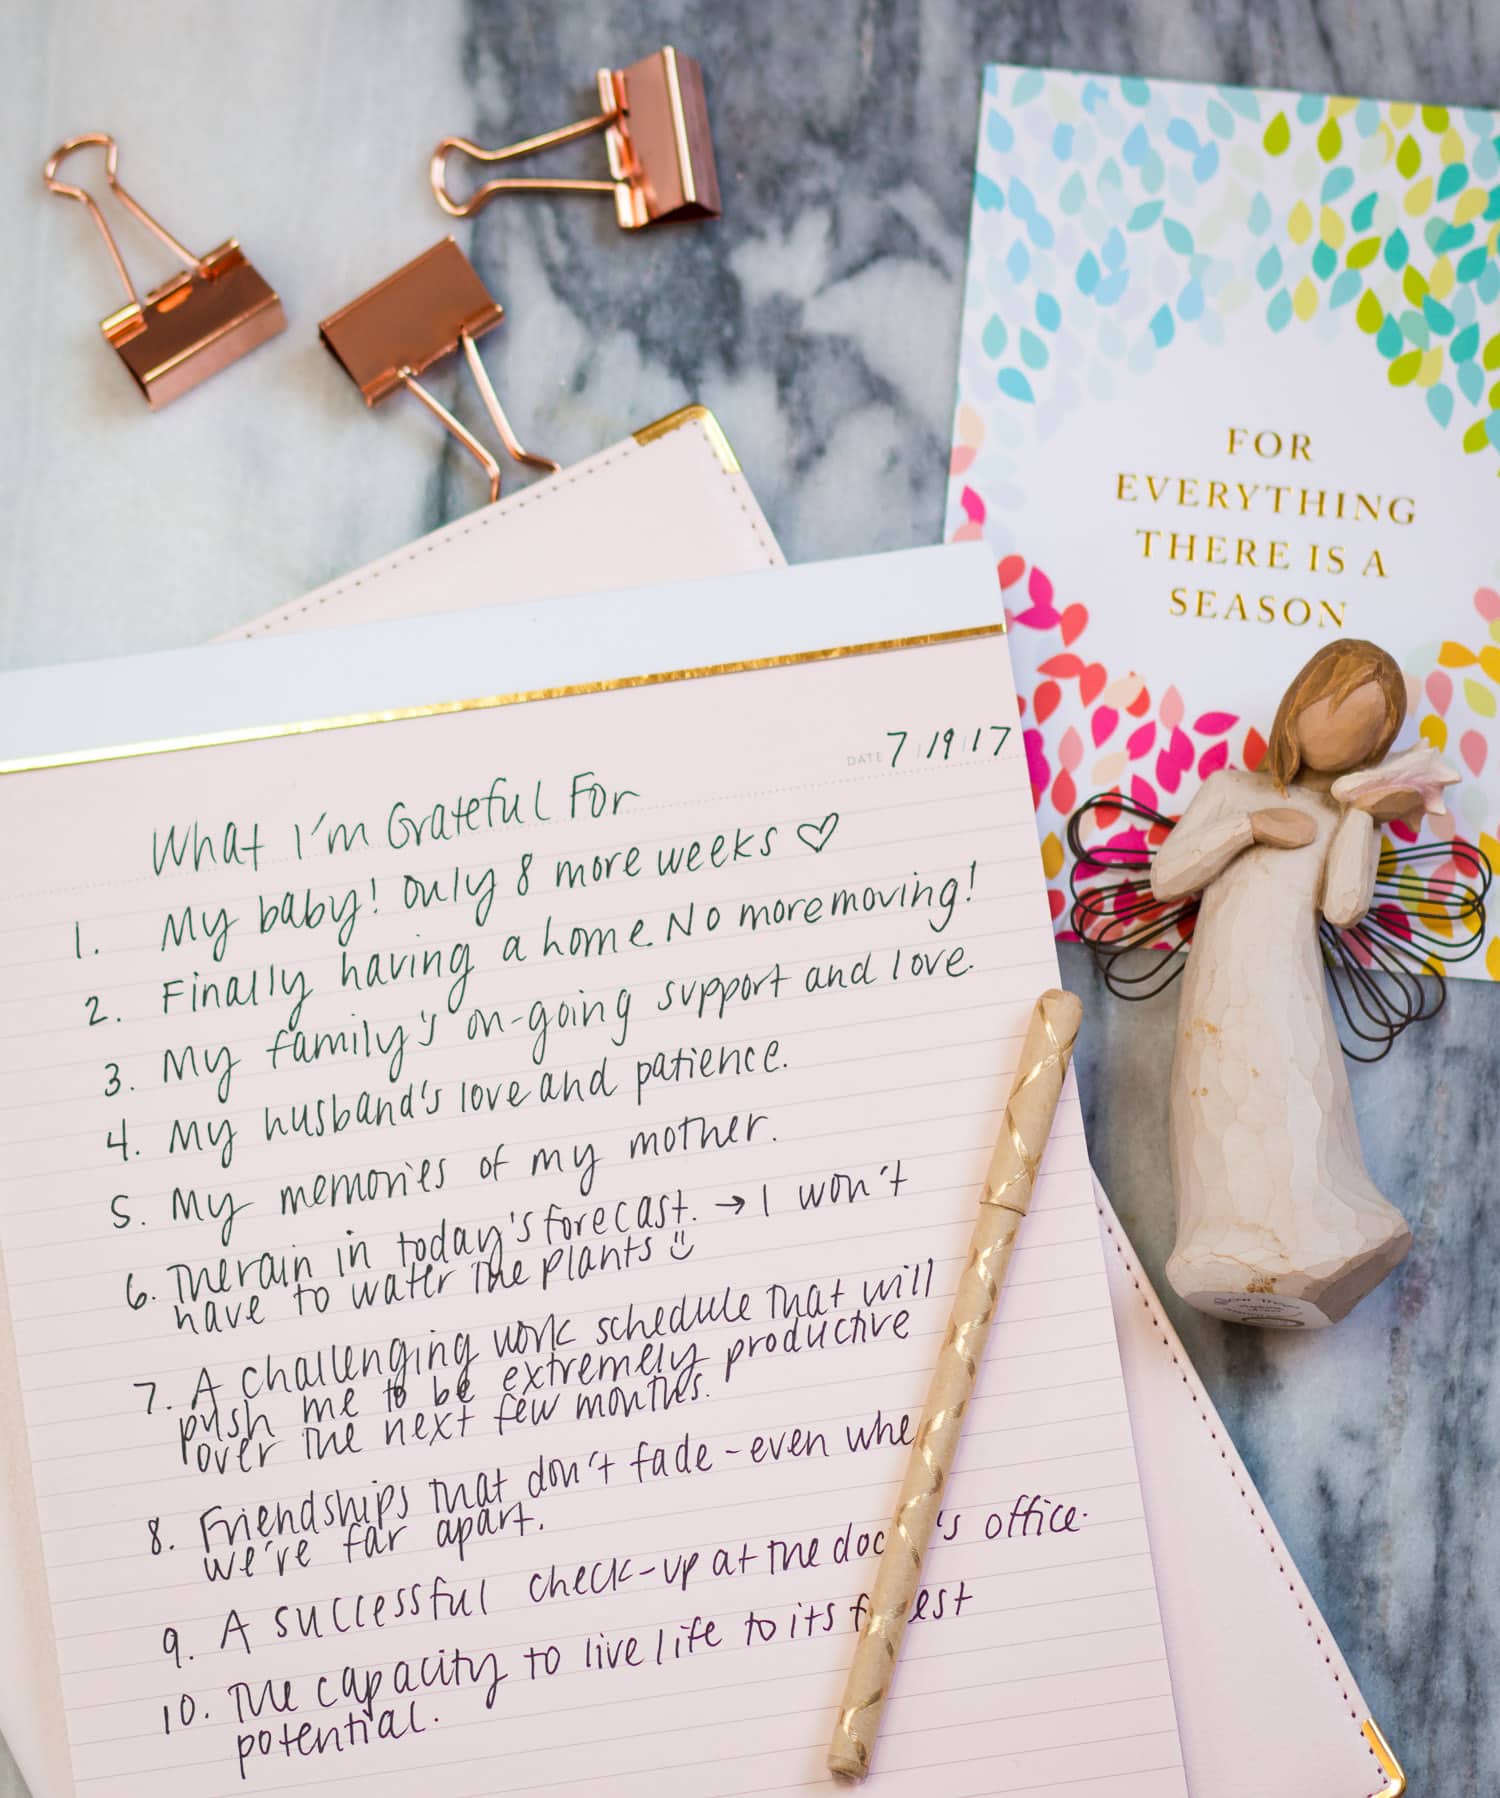 FOR
EVERYTHING
THERE IS A
SEASON
DATE 7/19/17
What I'm Grateful For
1. My baby! Only 8 more weeks ♡
2. Finally having a home. No more moving!
3. My family's on-going support and love.
4. My husband's love and patience.
5. My memories of my mother.
6. The rain in today's forecast. → I won't
have to water the plants
7. A challenging work schedule that will
push me to be extremely productive
over the next few months.
8. Friendships that don't fade - even whe
we're far apart.
9. A successful check-up at the doc 's office.
10. The capacity to live life to its f est
potential.